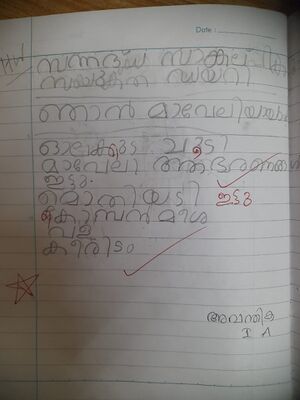 Date :
HW
സന്നദ്ധ സാങ്കല്പിക
സംയുക്ത ഡയറി
ഞാൻ മാവേലിയായാൽ
ഓലക്കുട ചൂടി
മാവേലി ആഭരണങ്ങൾ
ഇട്ടു.
മെതിയടി ഇട്ടു
കൊമ്പൻ മീശ
വള
കിരീടം
അവന്തിക
I A